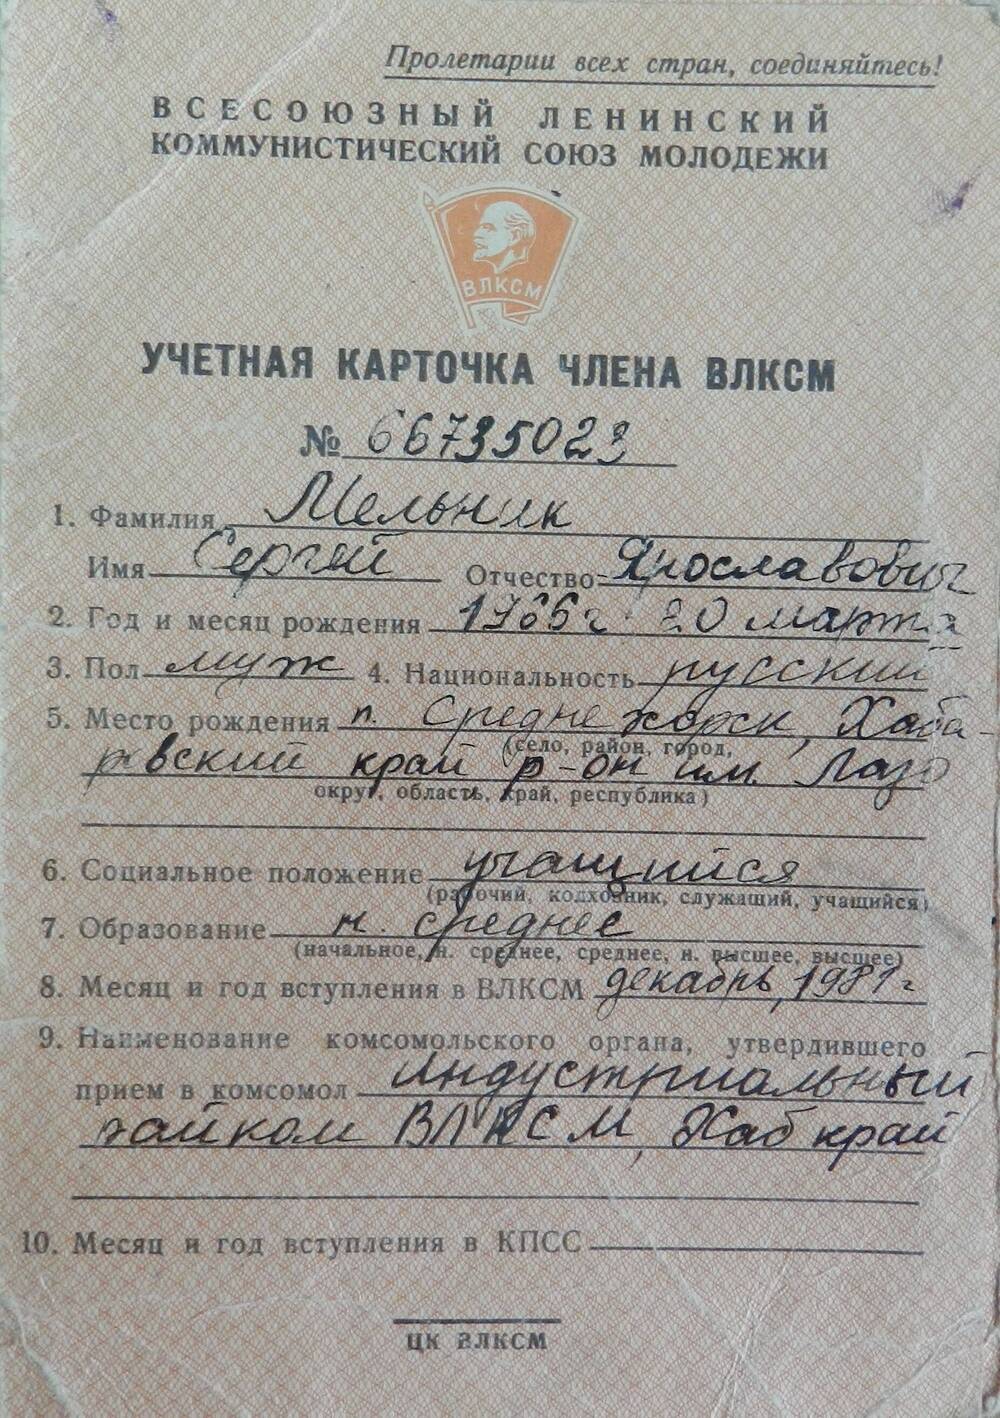 Пролетарии всех стран, соединяйтесь!
ВСЕСОЮЗНЫЙ ЛЕНИНСКИЙ
КОММУНИСТИЧЕСКИЙ СОЮЗ МОЛОДЕЖИ
ВЛКСМ
УЧЕТНАЯ КАРТОЧКА ЧЛЕНА ВЛКСМ
№ 66735023
1. Фамилия Мельник
Имя Сергей Отчество Ярославович
2. Год и месяц рождения 1966г 20 марта
3. Пол муж 4. Национальность русский
5. Место рождения п. Среднехорск, Хаба-
(село, район, город,
ровский край р-он им. Лазо
округ, область, край, республика)
6. Социальное положение учащийся
(рабочий, колхозник, служащий, учащийся)
7. Образование н. среднее
(начальное, н. среднее, среднее, н. высшее, высшее)
8. Месяц и год вступления в ВЛКСМ декабрь, 1981г
9. Наименование комсомольского органа, утвердившего
прием в комсомол Индустриальный
райком ВЛКСМ, Хаб край
10. Месяц и год вступления в КПСС
ЦК ВЛКСМ